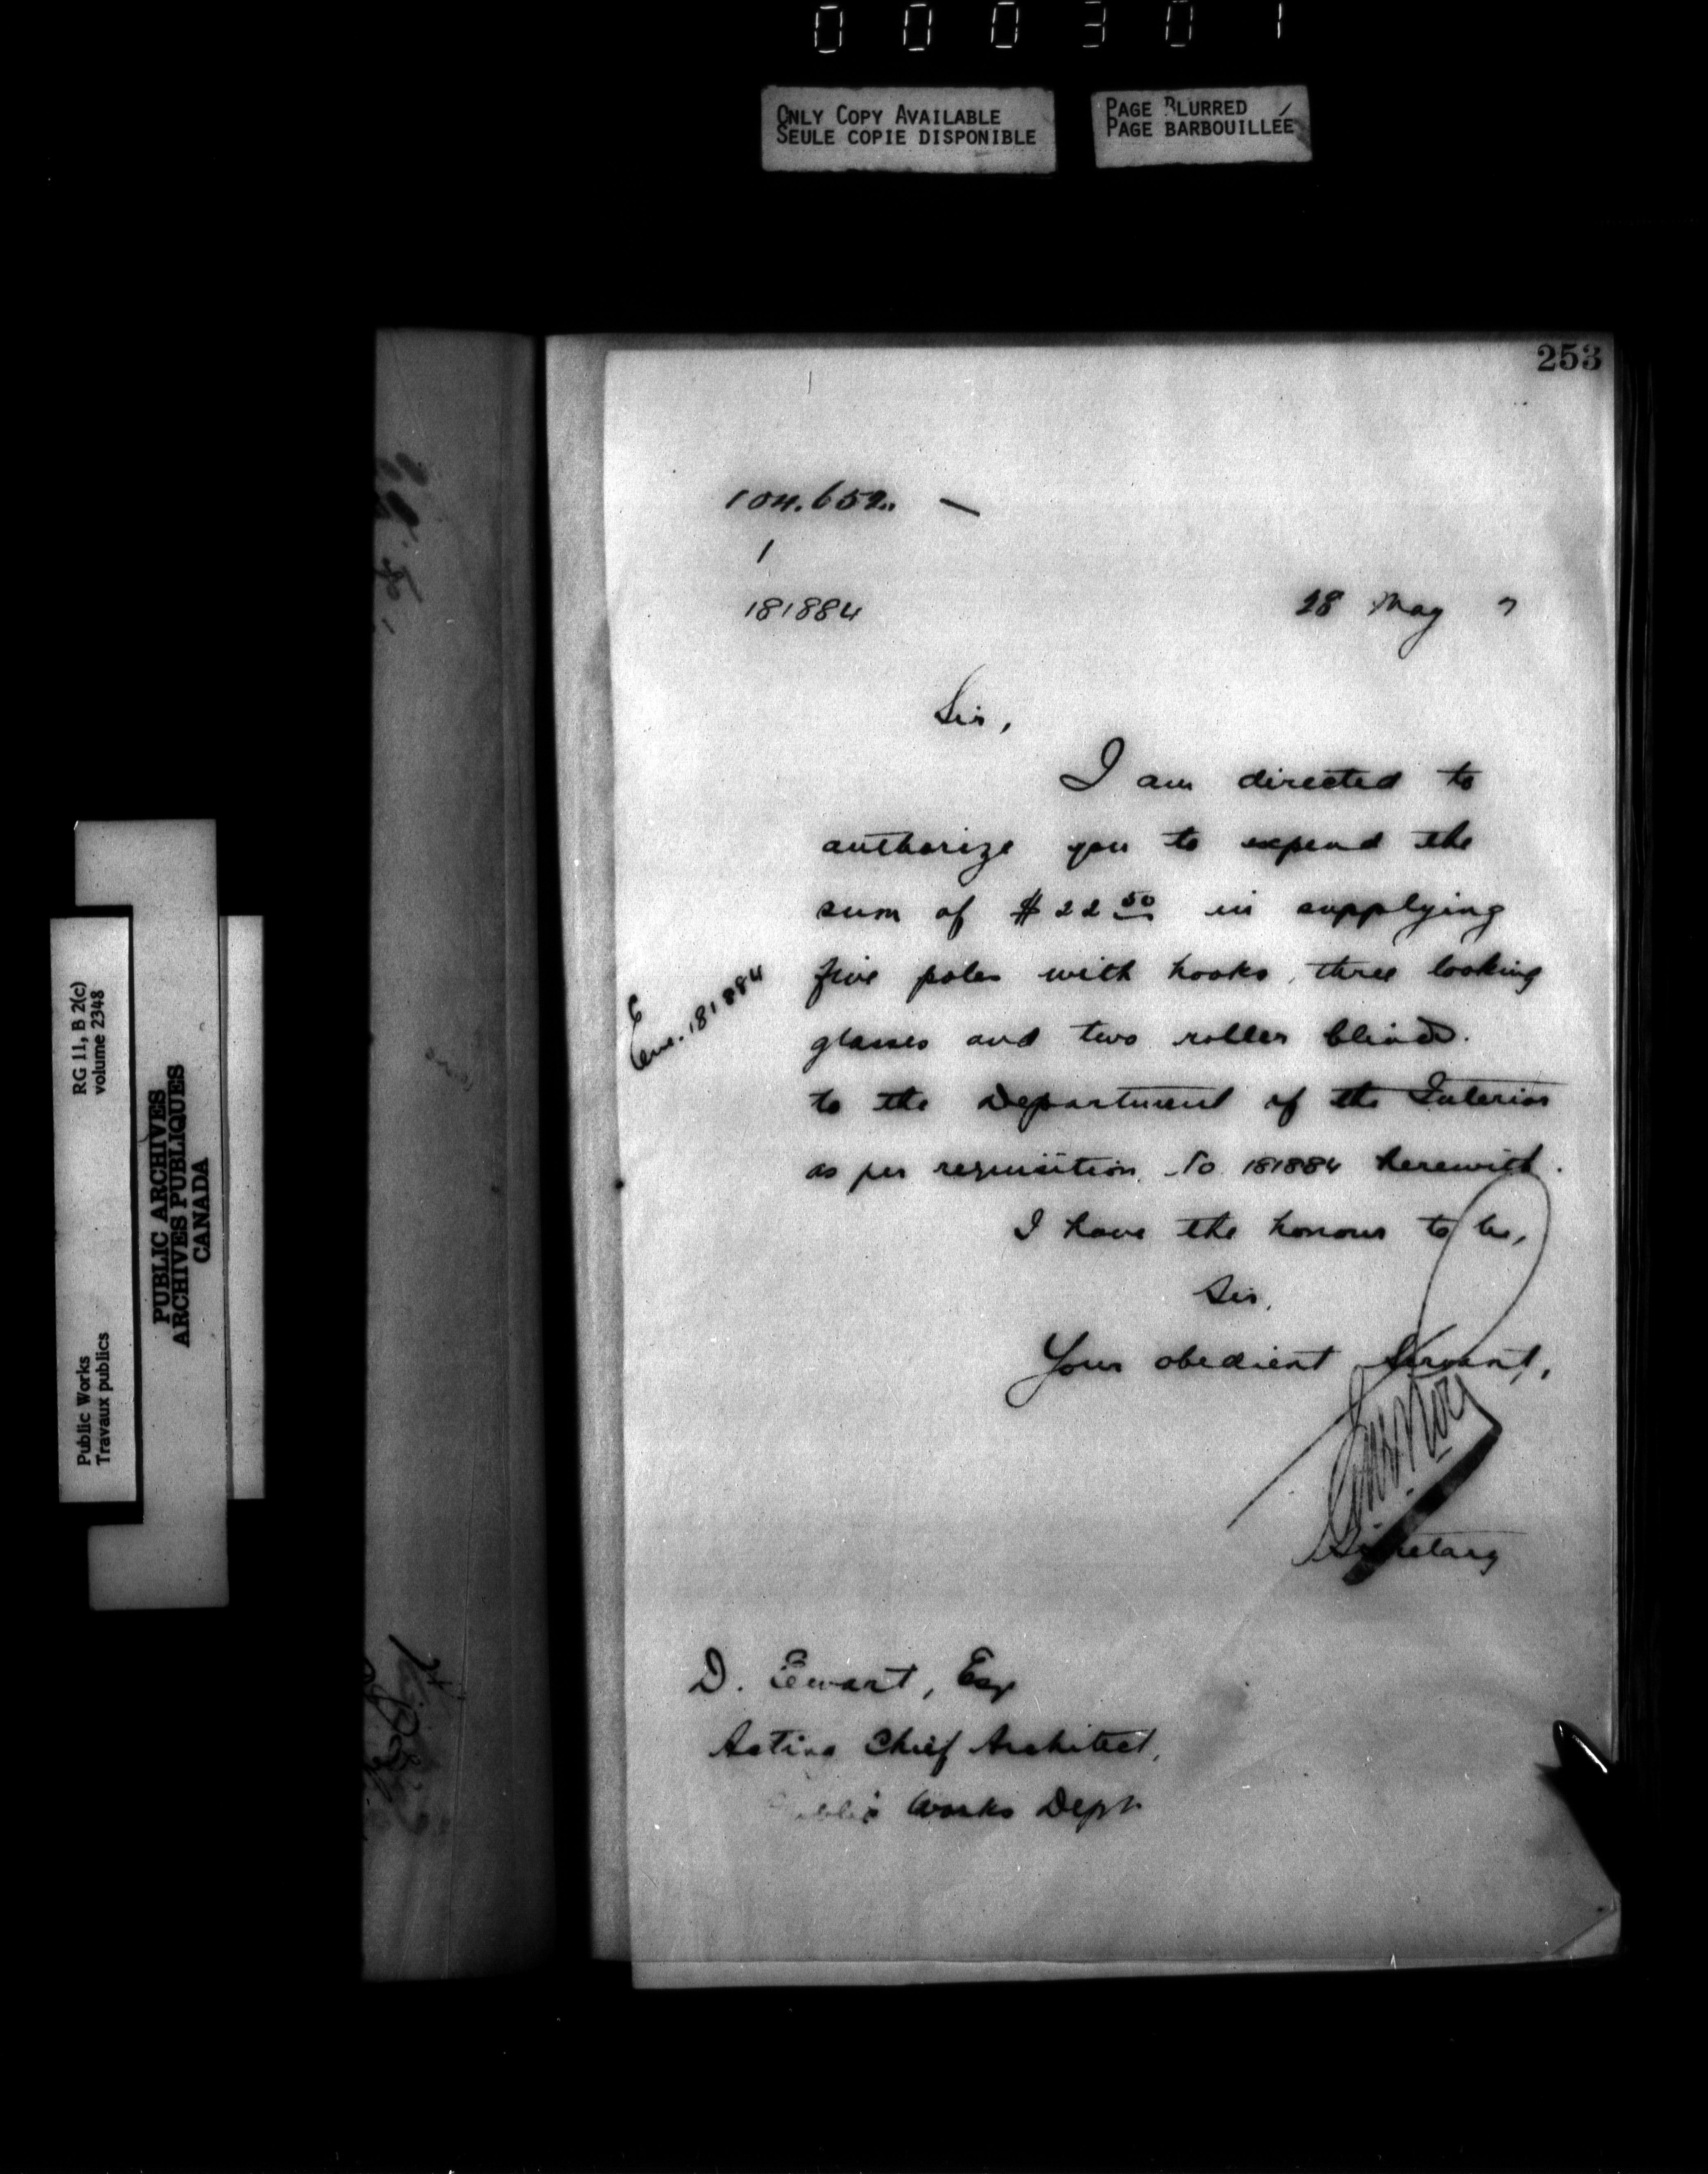 000301
ONLY COPY AVAILABLE
SEULE COPIE DISPONIBLE
PAGE BLURRED
PAGE BARBOUILLÉE
253
104.652
1
181884
28 May 7
Sir,
I am directed to
authorize you to expend the
sum of $22 50 in supplying
five poles with hooks, three looking
glasses and two roller blinds.
to the Department of the Interior
as per requisition No 181884 herewith.
I have the honour to be,
Sir,
Your obedient Servant,
Secretary
Enc. 181884
D. Ewart, Esq
Acting Chief Architect,
Public Works Dept
RG 11, B 2(c)
volume 2348
PUBLIC ARCHIVES
ARCHIVES PUBLIQUES
CANADA
Public Works
Travaux publics